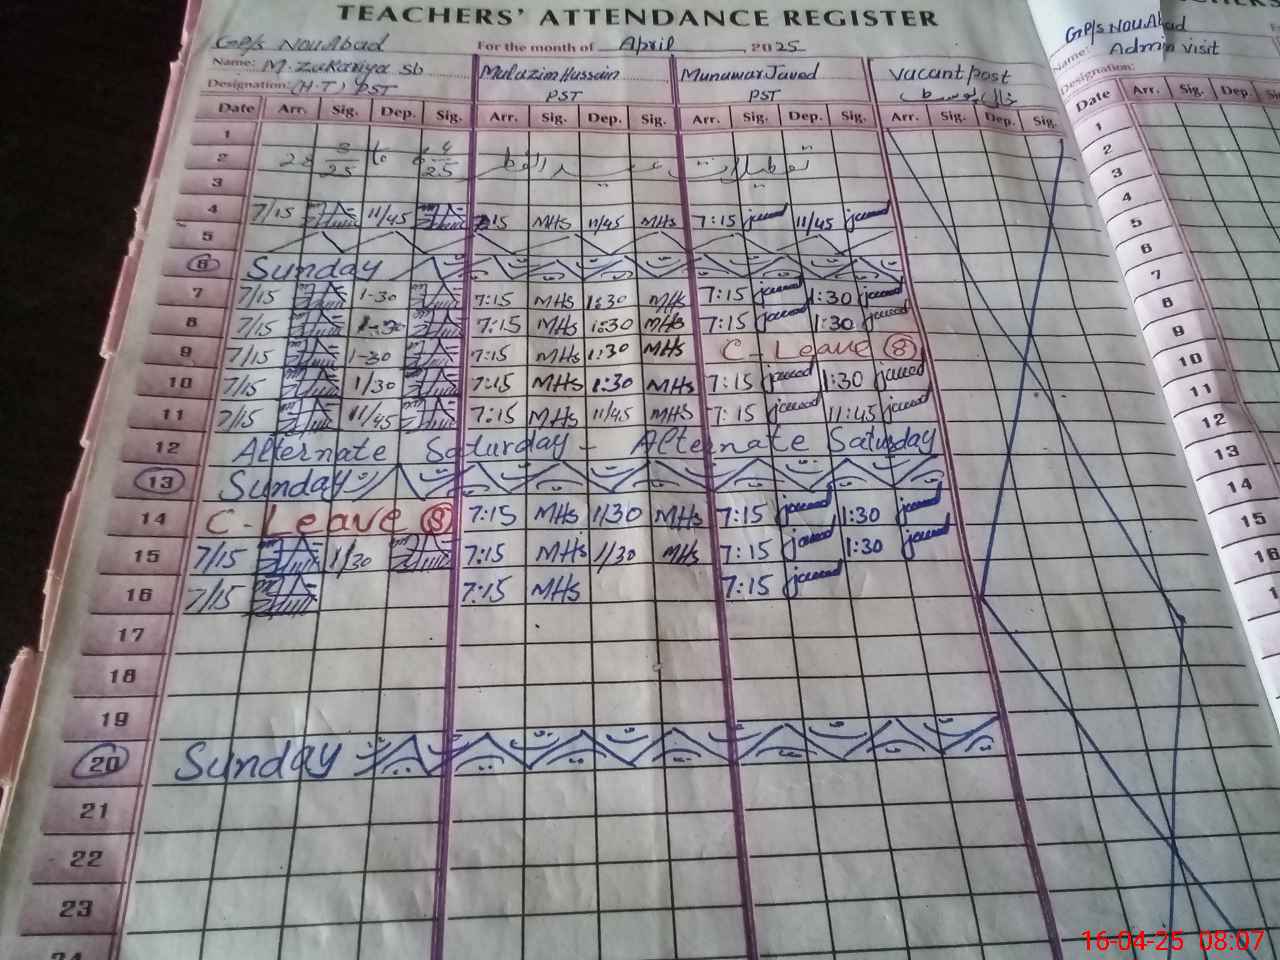 TEACHERS' ATTENDANCE REGISTER
GP/s NouAbad For the month of April, 2025
Name: M. Zakariya sb Mulazim Hussain Munawar Javed Vacant post
Designation: (H.T) PST PST PST
Date Arr. Sig. Dep. Sig. Arr. Sig. Dep. Sig. Arr. Sig. Dep. Sig. Arr. Sig. Dep. Sig.
1
2 28 3/25 to 4/25
3
4 7/15 11/45 7:15 MHs 11/45 MHs 7:15 javed 11/45 javed
5
6 Sunday
7 7/15 1-30 7:15 MHs 1:30 MHs 7:15 javed 1:30 javed
8 7/15 1-30 7:15 MHs 1:30 MHs 7:15 javed 1:30 javed
9 7/15 1-30 7:15 MHs 1:30 MHs C-Leave 8
10 7/15 1/30 7:15 MHs 1:30 MHs 7:15 javed 1:30 javed
11 7/15 11/45 7:15 MHs 11/45 MHs 7:15 javed 11:45 javed
12 Alternate Saturday - Alternate Saturday
13 Sunday
14 C-Leave 8 7:15 MHs 1/30 MHs 7:15 javed 1:30 javed
15 7/15 1/30 7:15 MHs 1/30 MHs 7:15 javed 1:30 javed
16 7/15 7:15 MHs 7:15 javed
17
18
19
20 Sunday
21
22
23
24
GP/s NouAbad
Name: Admin visit
Designation:
Date Arr. Sig. Dep.
1
2
3
4
5
6
7
8
9
10
11
12
13
14
15
16
16-04-25 08:07